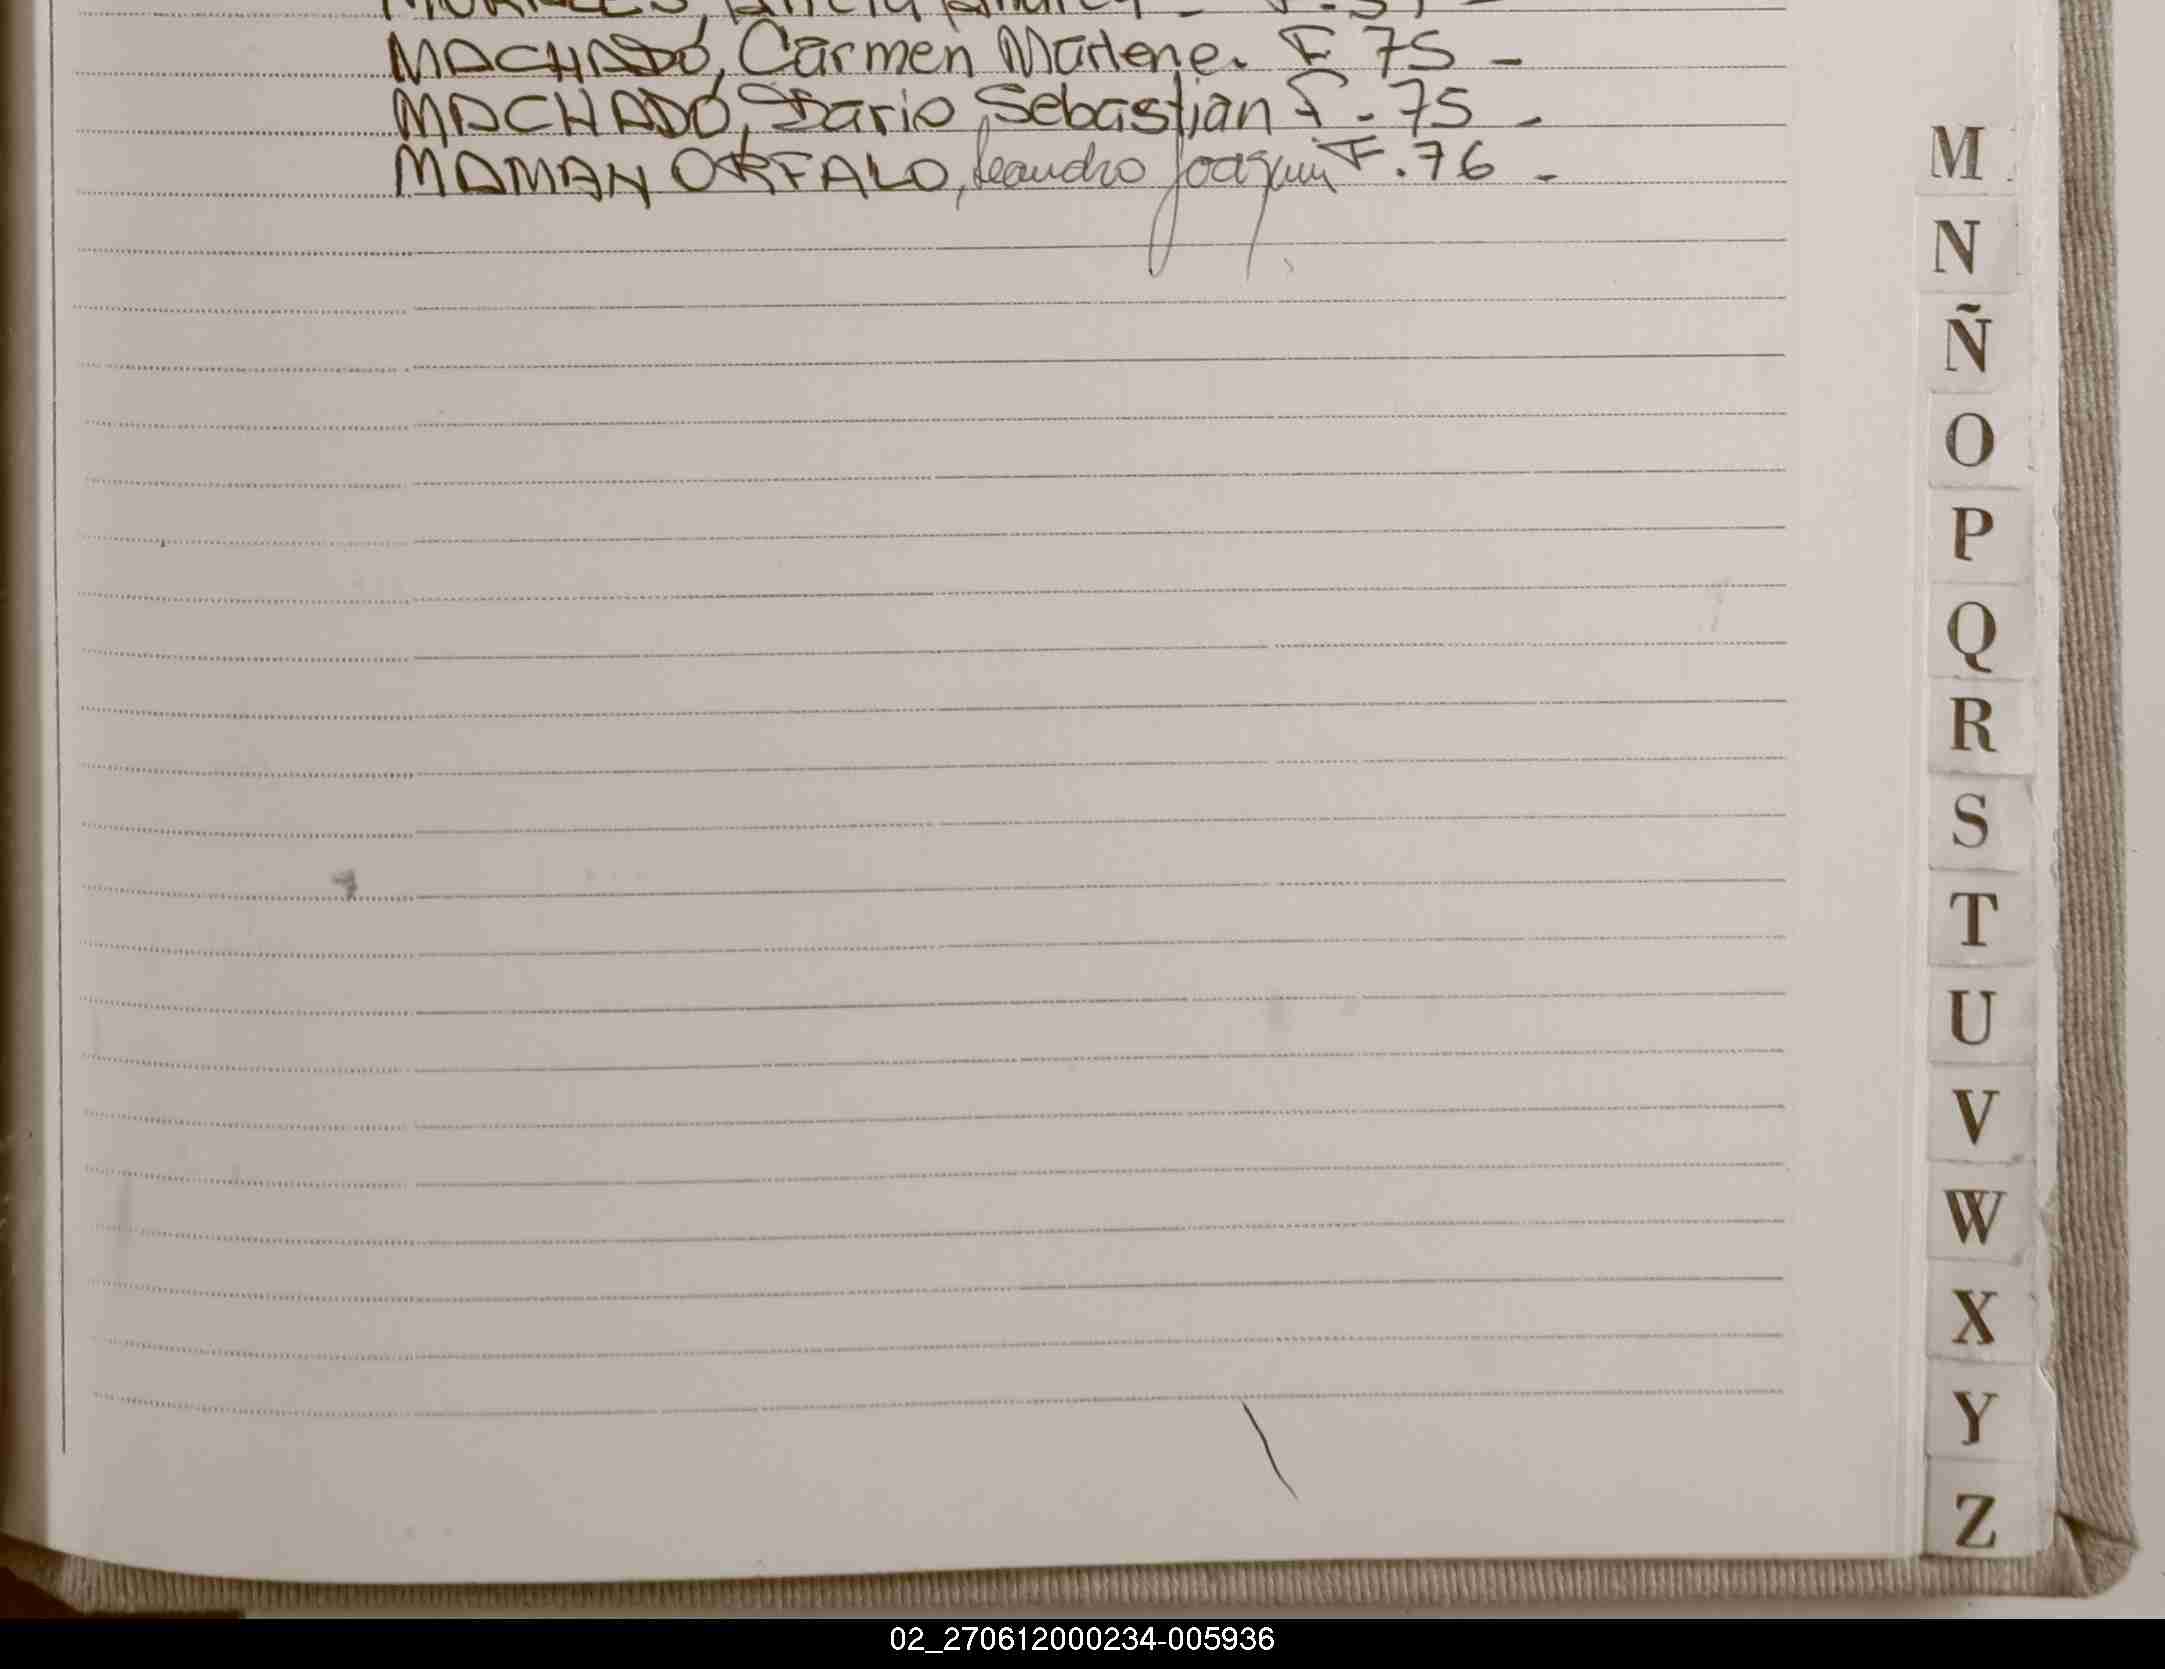 MACHADO, Carmen Marlene. F 75 -
MACHADO, Dario Sebastian F. 75 -
MAMAN ORFALO, Leandro Joaquin F. 76 -
M
N
Ñ
O
P
Q
R
S
T
U
V
W
X
Y
Z
02_270612000234-005936